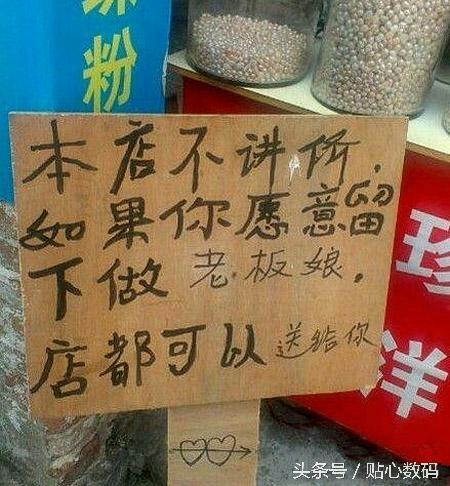 粉
本店不讲价.
如果你愿意留
下做老板娘.
店都可以送给你
珍
洋
头条号 / 贴心数码